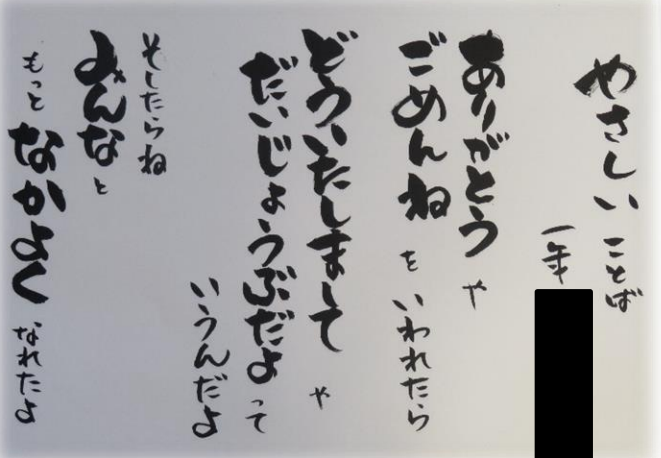 やさしい ことば
一年
ありがとう や
ごめんね を いわれたら
どういたしまして や
だいじょうぶだよ って
いうんだよ
そしたらね
みんな と
もっと なかよく なれたよ